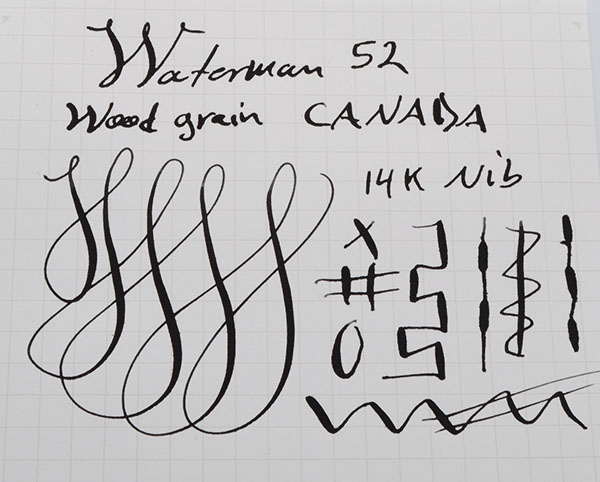 Waterman 52
Wood grain CANADA
14K Nib
X
#
O